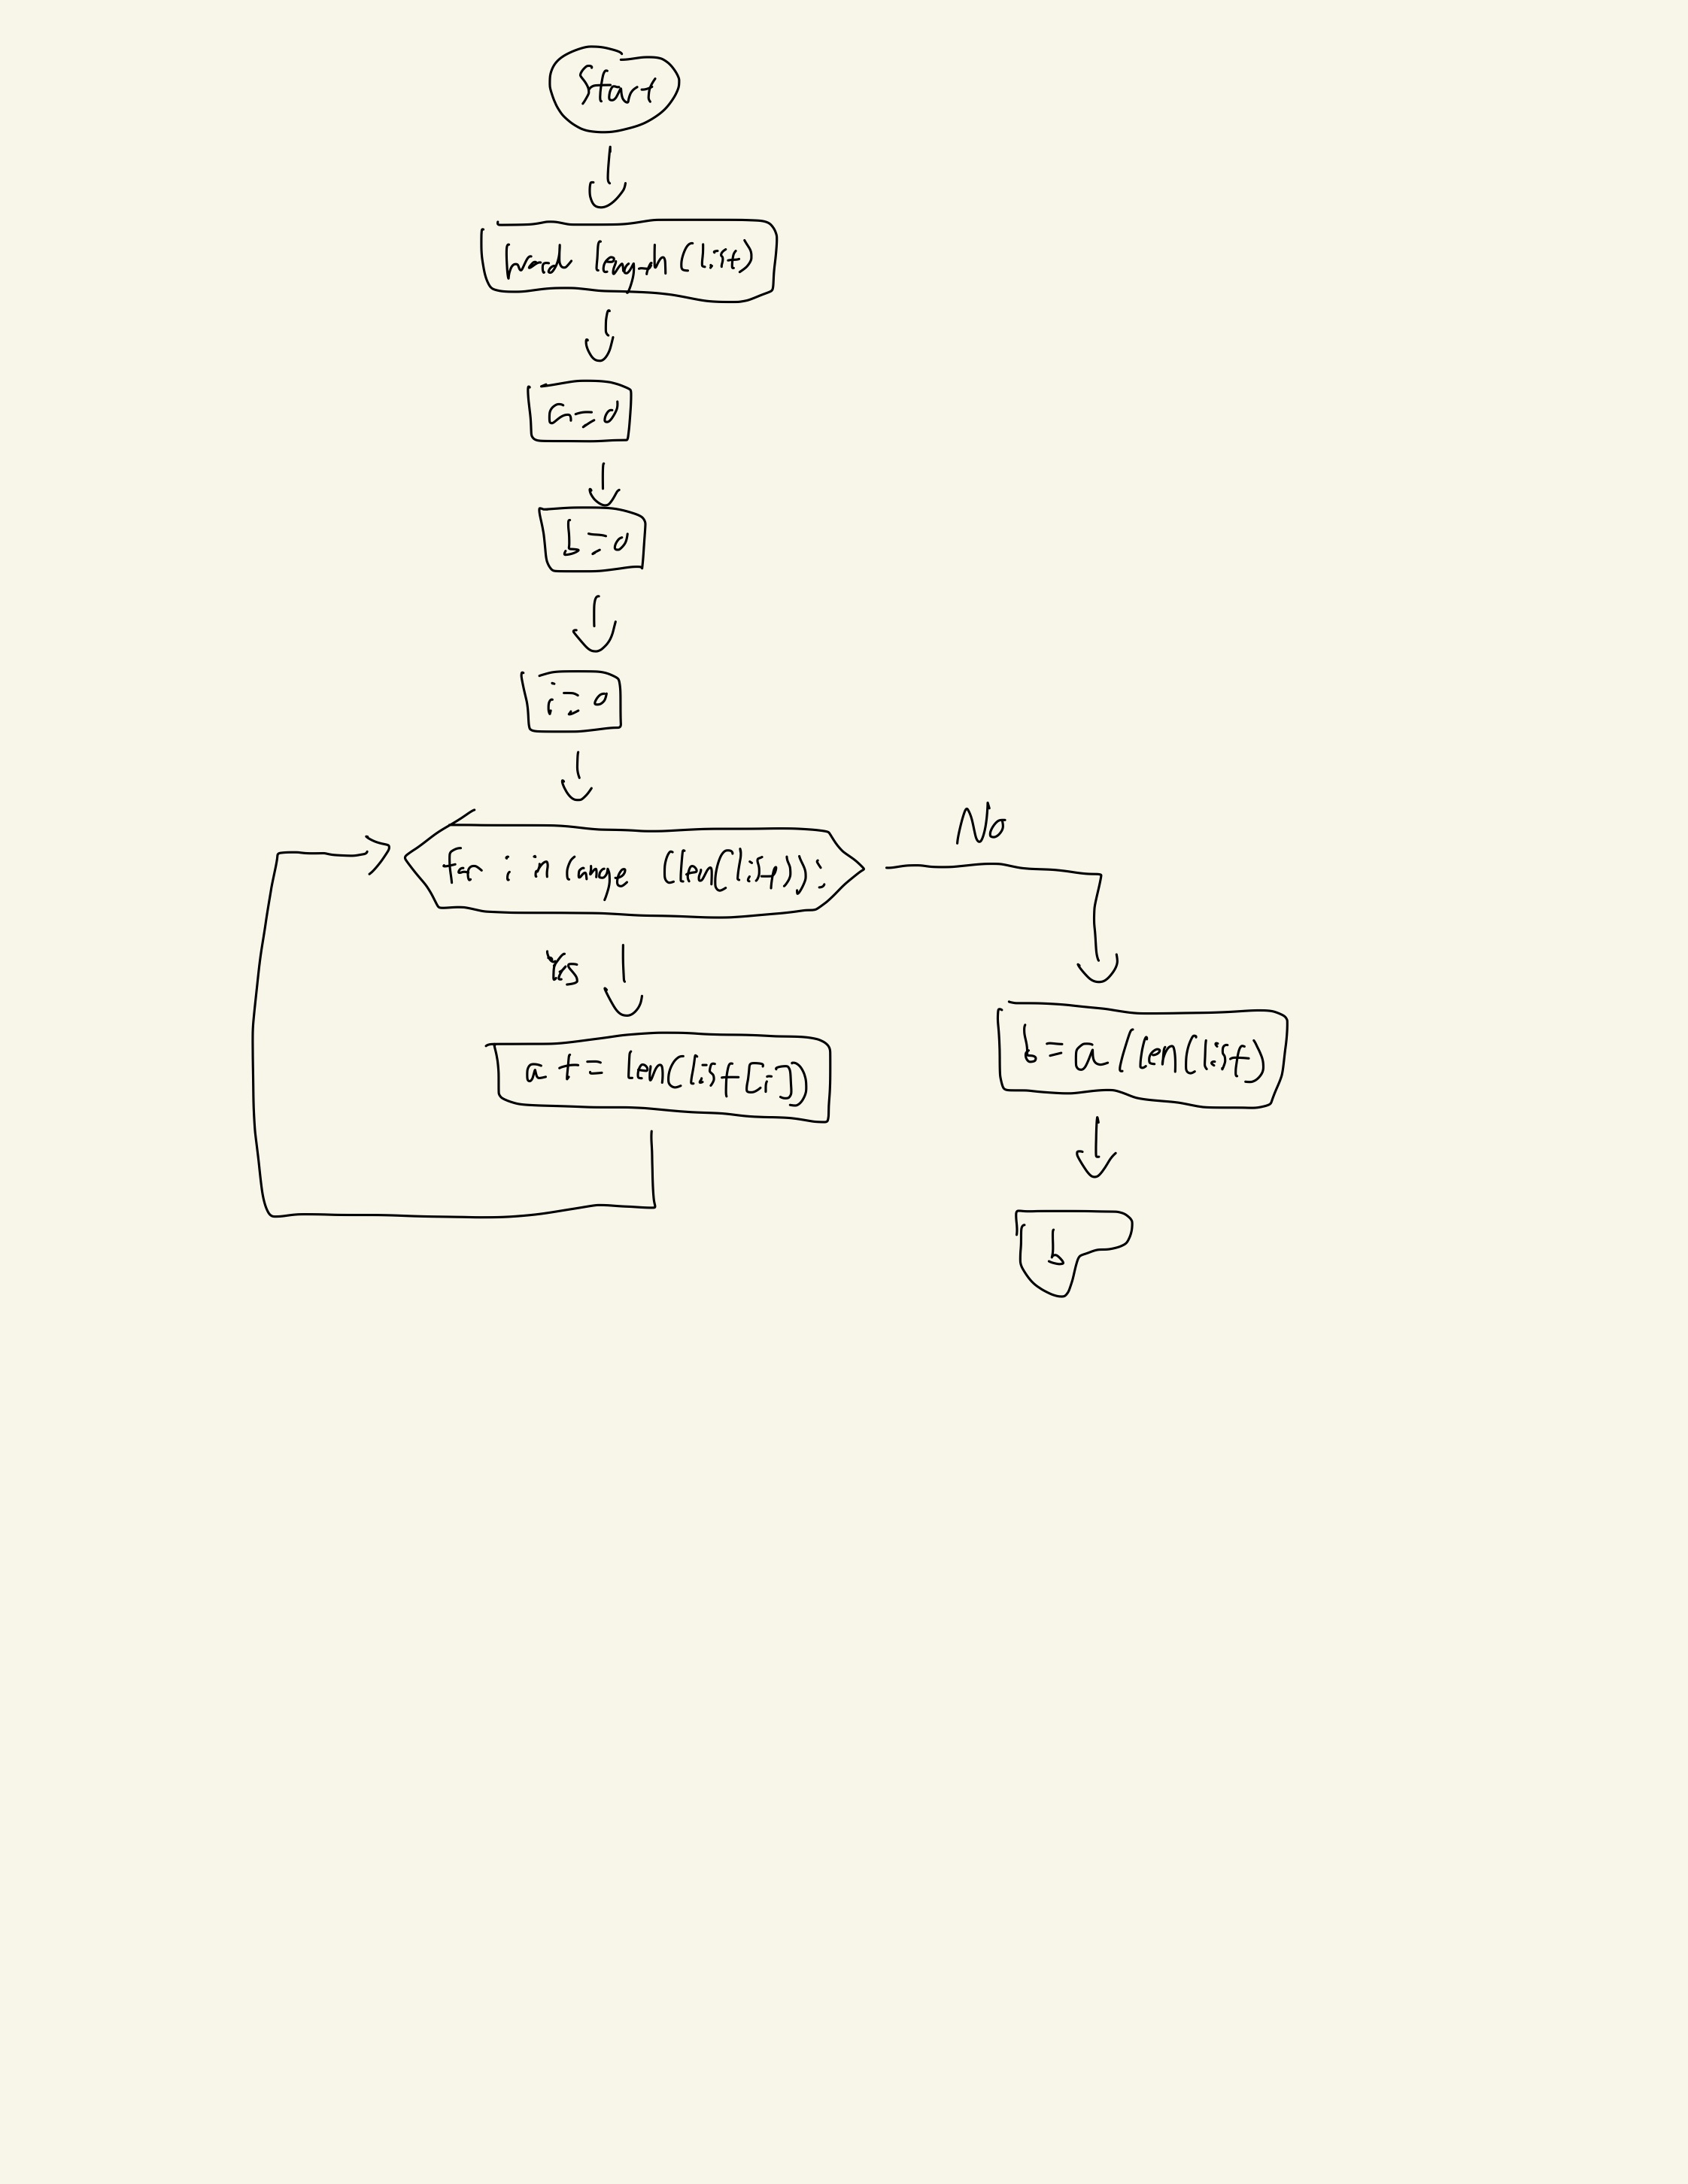 Start
word length (list)
a=0
b=0
i=0
for i in range (len(list)):
No
Yes
a += len(list[i])
b = a/len(list)
b